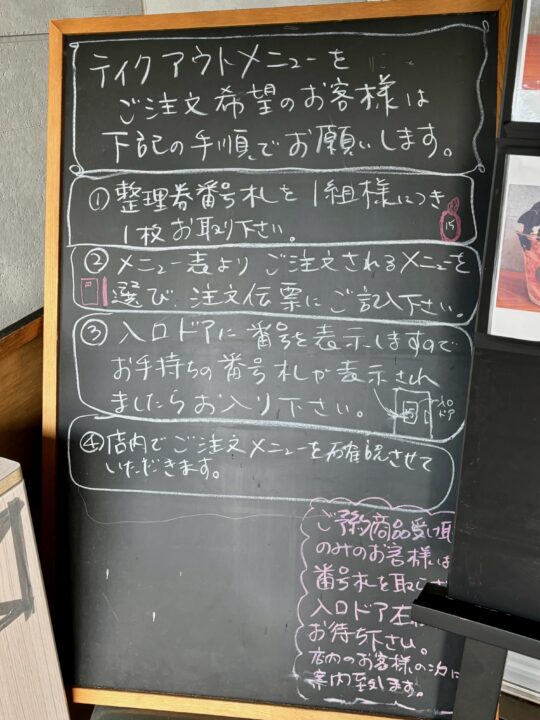 テイクアウトメニューを
ご注文希望のお客様は
下記の手順でお願いします。
① 整理券番号札を1組様につき
1枚お取り下さい。
15
② メニュー表よりご注文されるメニューを
選び注文伝票にご記入下さい。
③ 入口ドアに番号を表示しますので
お手持ちの番号札が表示され
ましたらお入り下さい。
15
入口
ドア
④ 店内でご注文メニューを確認させて
いただきます。
ご予約商品受け取
のみのお客様は
番号札を取らず
入口ドア左
お待ち下さい。
店内のお客様の次に
案内致します。